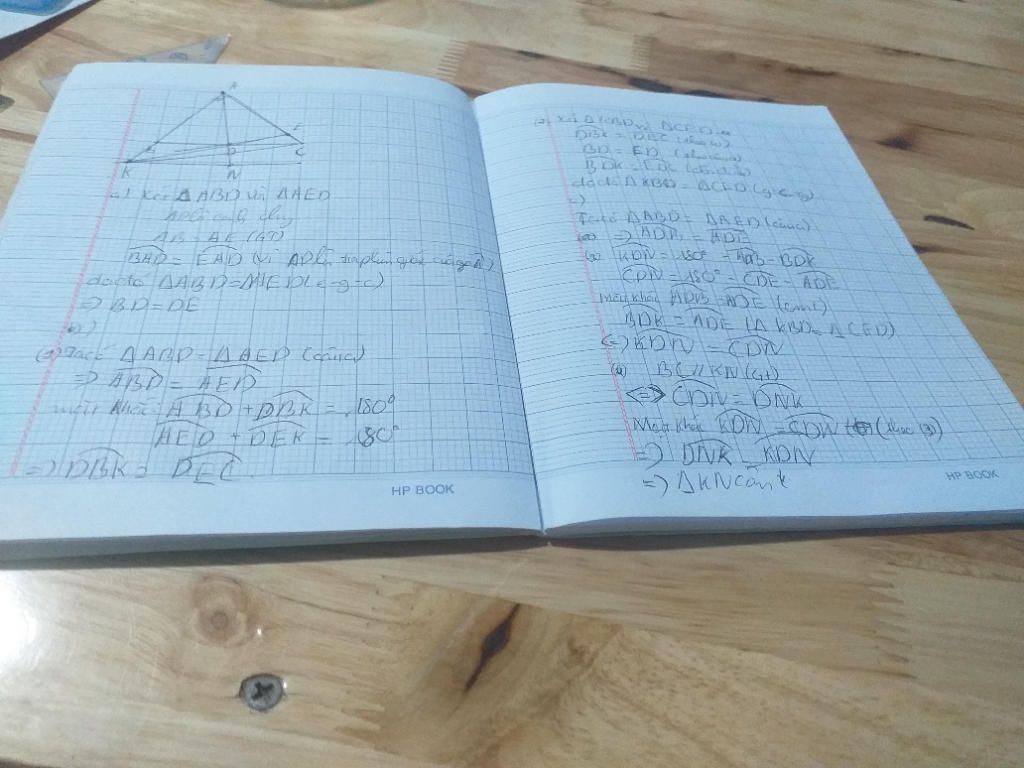 A
E
D
C
K
N
a) Xét ΔABD và ΔAED
AD là cạnh chung
AB = AE (GT)
BAD = EAD (Vì AD là tia phân giác của góc A)
do có ΔABD = ΔAED (c-g-c)
=> BD = DE
b)
Ta có ΔABD = ΔAED (câu a)
=> ABD = AED
mặt khác ABD + DBK = 180°
AED + DEK = 180°
=> DBK = DEC
HP BOOK
Xét ΔKBD và ΔCED
DBK = DEC
BD = ED
BDK = EDC
do đó ΔKBD = ΔCED (g-c-g)
c)
Ta có ΔABD = ΔAED (câu a)
=> ADB = ADE
KDN = 180° - ADB - BDK
CDN = 180° - CDE - ADE
mặt khác ADB = ADE (cmt)
BDK = ADE (ΔKBD = ΔCED)
<=> KDN = CDN
BC // KN (Gt)
<=> CDN = DNK
Mặt khác KDN = CDN (theo 3)
=> DNK = KDN
=> ΔKN cân k
HP BOOK